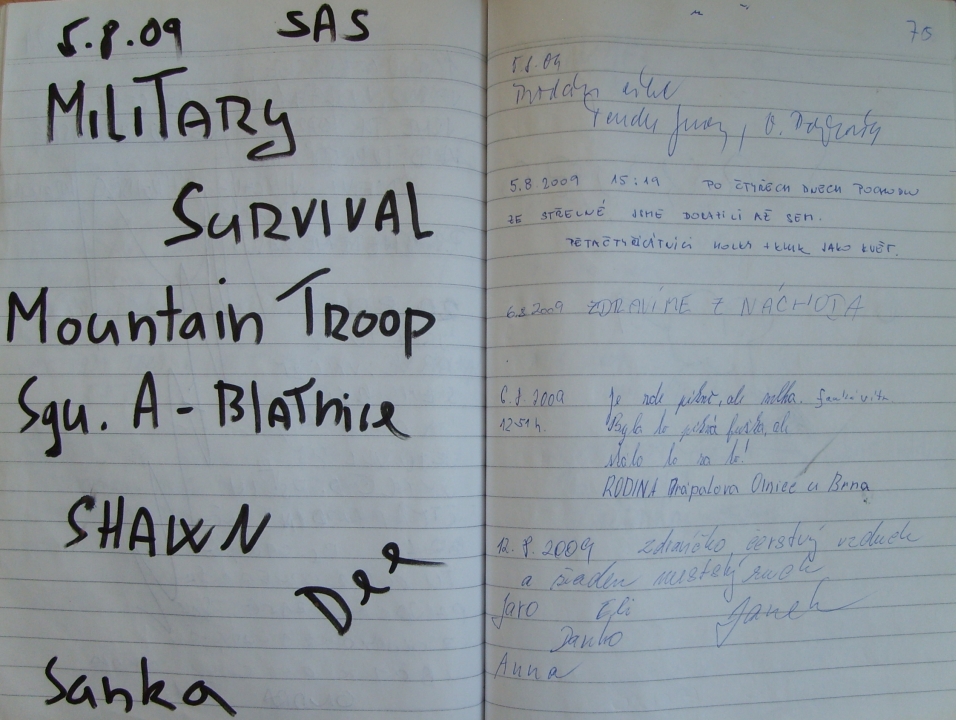 5.8.09 SAS
MILITARY
SURVIVAL
Mountain TROOP
Squ. A - BlATnice
SHAWN
Dee
Sanka
75
5.8.09
5.8.2009 15:19 PO ČTYŘECH DNECH POCHODU
ZE STŘELNÉ JSME DORAZILI AŽ SEM.
JAKO KVĚT.
6.8.2009 ZDRAVÍME Z NÁCHODA
6.8.2009 Je zde pěkně, ale
12:51 h. Byla to pěkná fuška, ale
stálo to za to!
RODINA Drápalova Olnice u Brna
12.8.2009 zdravíčko, čerstvý vzduch
a žiaden mestský ruch
Jaro Eli Janek
Danko
Anna